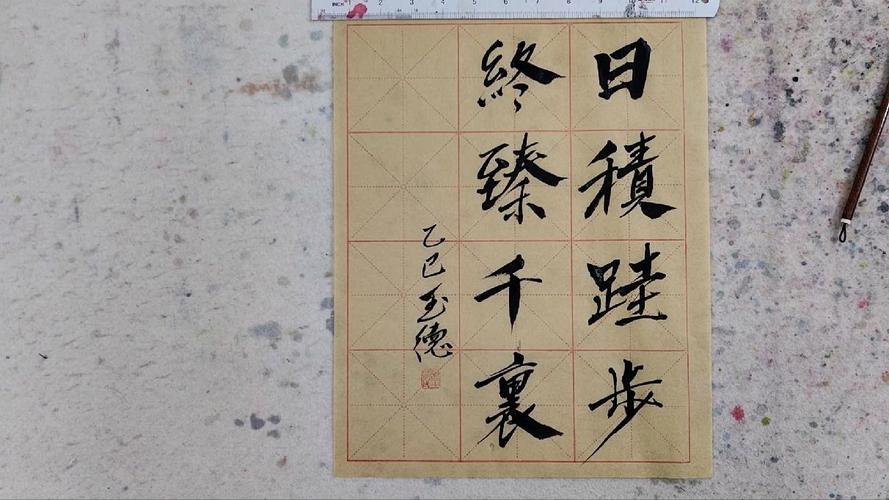 日積跬步
終臻千裏
乙巳玉德